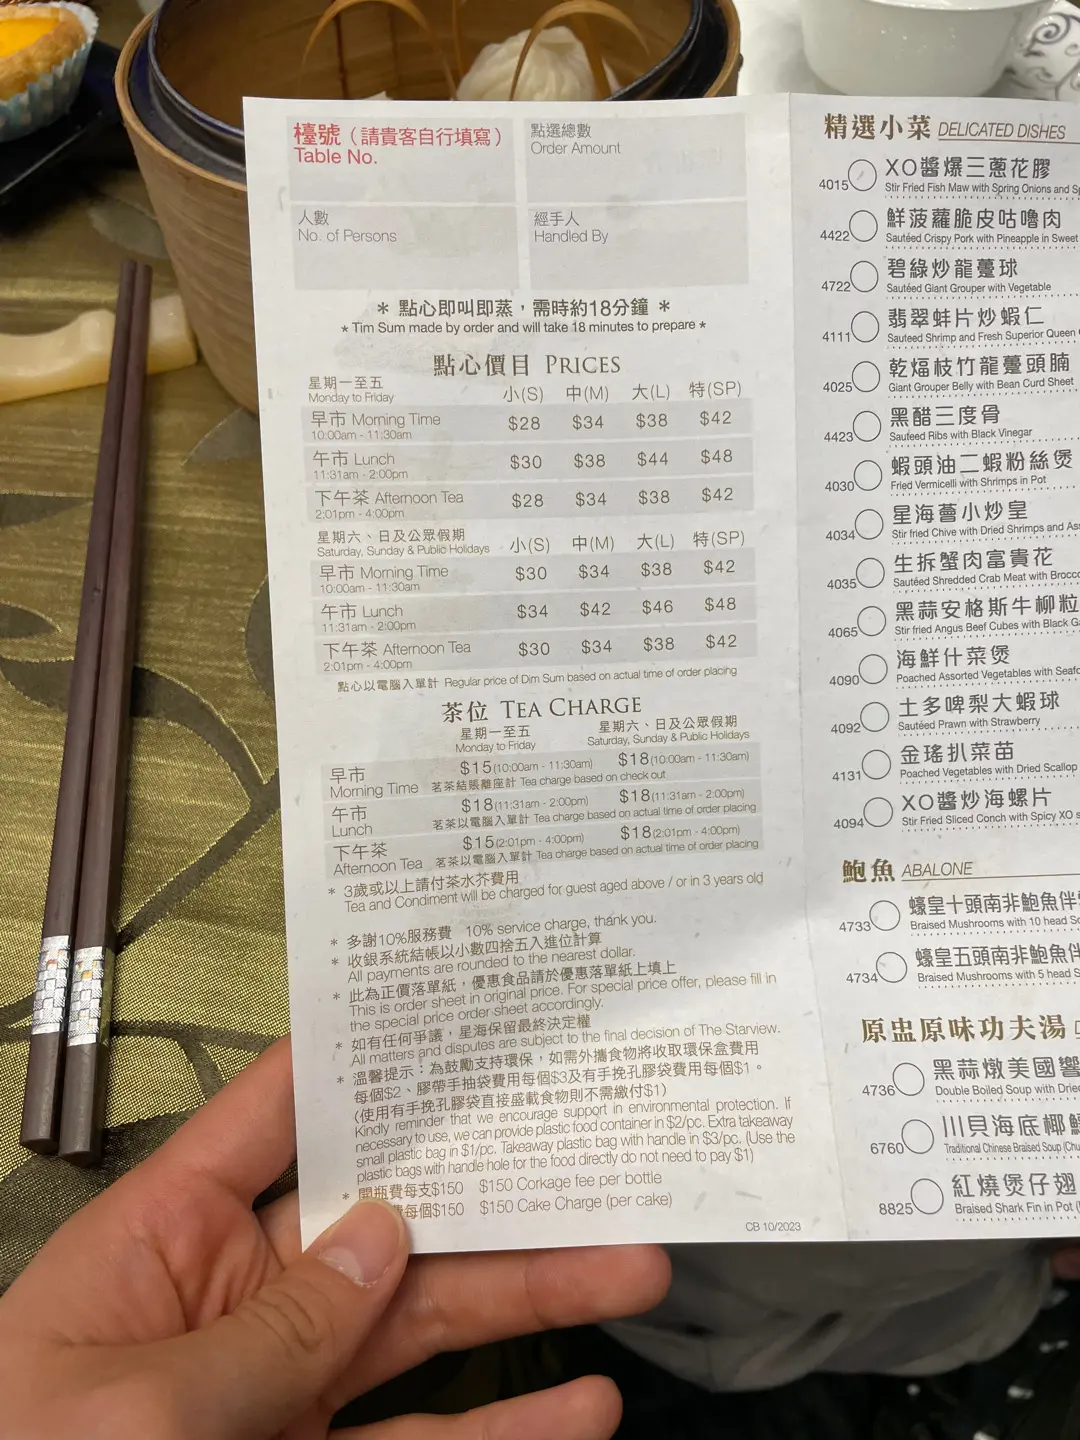 檯號（請貴客自行填寫）
Table No.
點選總數
Order Amount
人數
No. of Persons
經手人
Handled By
* 點心即叫即蒸，需時約18分鐘 *
* Tim Sum made by order and will take 18 minutes to prepare *
點心價目 PRICES
星期一至五
Monday to Friday
小(S) 中(M) 大(L) 特(SP)
早市 Morning Time
10:00am - 11:30am
$28 $34 $38 $42
午市 Lunch
11:31am - 2:00pm
$30 $38 $44 $48
下午茶 Afternoon Tea
2:01pm - 4:00pm
$28 $34 $38 $42
星期六、日及公眾假期
Saturday, Sunday & Public Holidays
小(S) 中(M) 大(L) 特(SP)
早市 Morning Time
10:00am - 11:30am
$30 $34 $38 $42
午市 Lunch
11:31am - 2:00pm
$34 $42 $46 $48
下午茶 Afternoon Tea
2:01pm - 4:00pm
$30 $34 $38 $42
點心以電腦入單計 Regular price of Dim Sum based on actual time of order placing
茶位 TEA CHARGE
星期一至五
Monday to Friday
星期六、日及公眾假期
Saturday, Sunday & Public Holidays
早市
Morning Time
$15(10:00am - 11:30am) $18(10:00am - 11:30am)
茗茶結賬離座計 Tea charge based on check out
午市
Lunch
$18(11:31am - 2:00pm) $18(11:31am - 2:00pm)
茗茶以電腦入單計 Tea charge based on actual time of order placing
下午茶
Afternoon Tea
$15(2:01pm - 4:00pm) $18(2:01pm - 4:00pm)
茗茶以電腦入單計 Tea charge based on actual time of order placing
* 3歲或以上請付茶水芥費用
Tea and Condiment will be charged for guest aged above / or in 3 years old
* 多謝10%服務費 10% service charge, thank you.
* 收銀系統結帳以小數四捨五入進位計算
All payments are rounded to the nearest dollar.
* 此為正價落單紙，優惠食品請於優惠落單紙上填上
This is order sheet in original price. For special price offer, please fill in
the special price order sheet accordingly.
* 如有任何爭議，星海保留最終決定權
All matters and disputes are subject to the final decision of The Starview.
* 溫馨提示：為鼓勵支持環保，如需外攜食物將收取環保盒費用
每個$2、膠帶手抽袋費用每個$3及有手挽孔膠袋費用每個$1。
(使用有手挽孔膠袋直接盛載食物則不需繳付$1)
Kindly reminder that we encourage support in environmental protection. If
necessary to use, we can provide plastic food container in $2/pc. Extra takeaway
small plastic bag in $1/pc. Takeaway plastic bag with handle in $3/pc. (Use the
plastic bags with handle hole for the food directly do not need to pay $1)
* 開瓶費每支$150 $150 Corkage fee per bottle
費每個$150 $150 Cake Charge (per cake)
CB 10/2023
精選小菜 DELICATED DISHES
4015 XO醬爆三蔥花膠
Stir Fried Fish Maw with Spring Onions and
4422 鮮菠蘿脆皮咕嚕肉
Sautéed Crispy Pork with Pineapple in Sweet
4722 碧綠炒龍躉球
Sautéed Giant Grouper with Vegetable
4111 翡翠蚌片炒蝦仁
Sauteed Shrimp and Fresh Superior Queen
4025 乾煏枝竹龍躉頭腩
Giant Grouper Belly with Bean Curd Sheet
4423 黑醋三度骨
Sauteed Ribs with Black Vinegar
4030 蝦頭油二蝦粉絲煲
Fried Vermicelli with Shrimps in Pot
4034 星海薈小炒皇
Stir fried Chive with Dried Shrimps and
4035 生拆蟹肉富貴花
Sautéed Shredded Crab Meat with
4065 黑蒜安格斯牛柳粒
Stir fried Angus Beef Cubes with Black
4090 海鮮什菜煲
Poached Assorted Vegetables with
4092 士多啤梨大蝦球
Sautéed Prawn with Strawberry
4131 金瑤扒菜苗
Poached Vegetables with Dried Scallop
4094 XO醬炒海螺片
Stir Fried Sliced Conch with Spicy XO
鮑魚 ABALONE
4733 蠔皇十頭南非鮑魚伴
Braised Mushrooms with 10 head
4734 蠔皇五頭南非鮑魚伴
Braised Mushrooms with 5 head
原盅原味功夫湯
4736 黑蒜燉美國響
Double Boiled Soup with
6760 川貝海底椰
Traditional Chinese Braised Soup
8825 紅燒煲仔翅
Braised Shark Fin in Pot